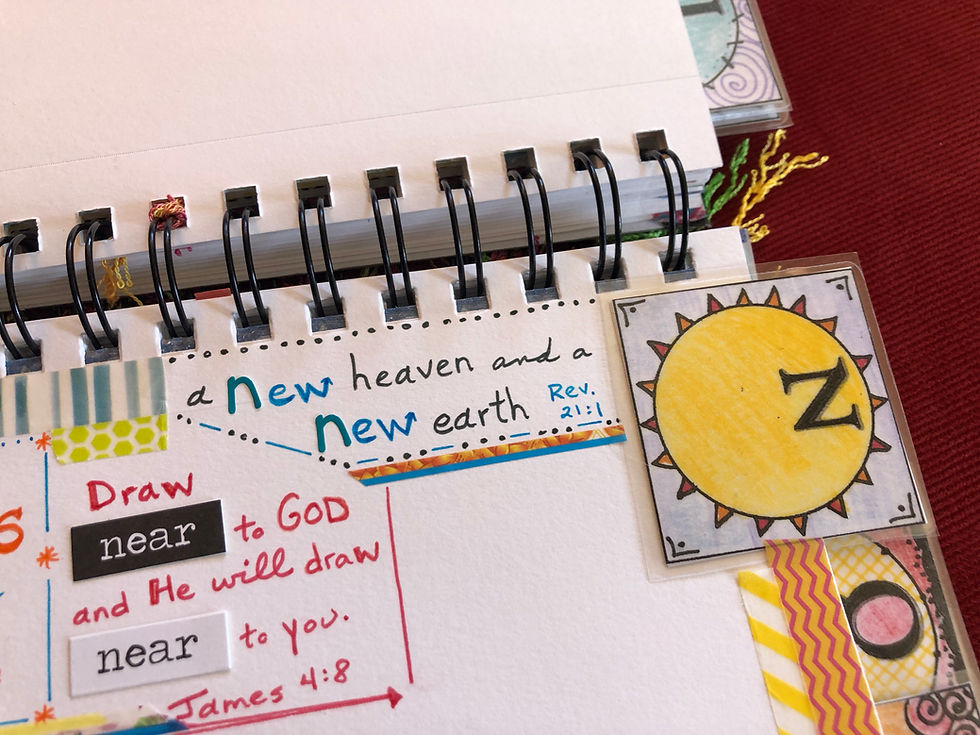 a new heaven and a
new earth
Rev.
21:1
N
Draw
near to GOD
and He will draw
near to you.
James 4:8
O